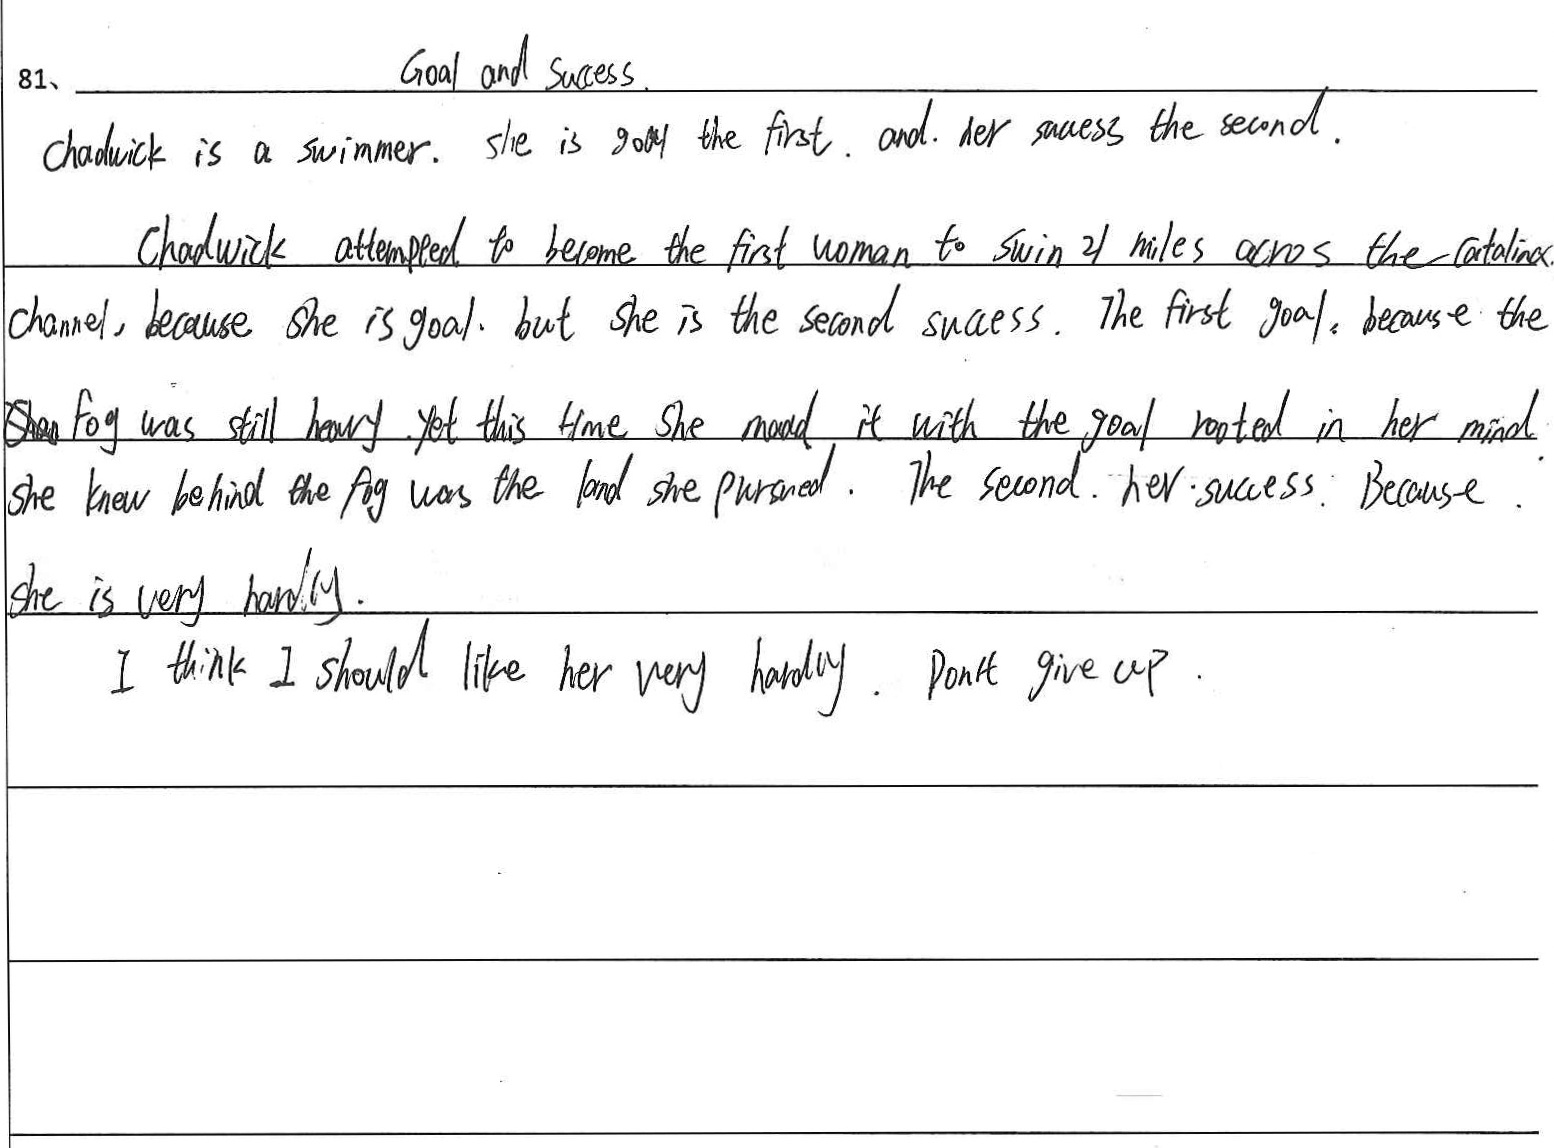 81、 Goal and Success.
Chadwick is a swimmer. she is goal the first. and. her success the second.
Chadwick attempted to become the first woman to swin 21 miles acros the Catalina.
channel, because she is goal. but she is the second success. The first goal. because the
fog was still heavy. yet this time she maad it with the goal rooted in her mind.
she knew behind the fog was the land she pursued. The second. her success. Because.
she is very hardly.
I think I should like her very hardly. Don't give up.